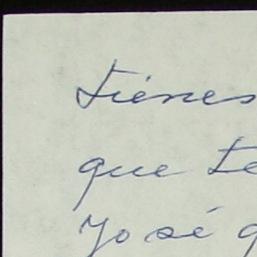 tienes
que te
Yo sé q